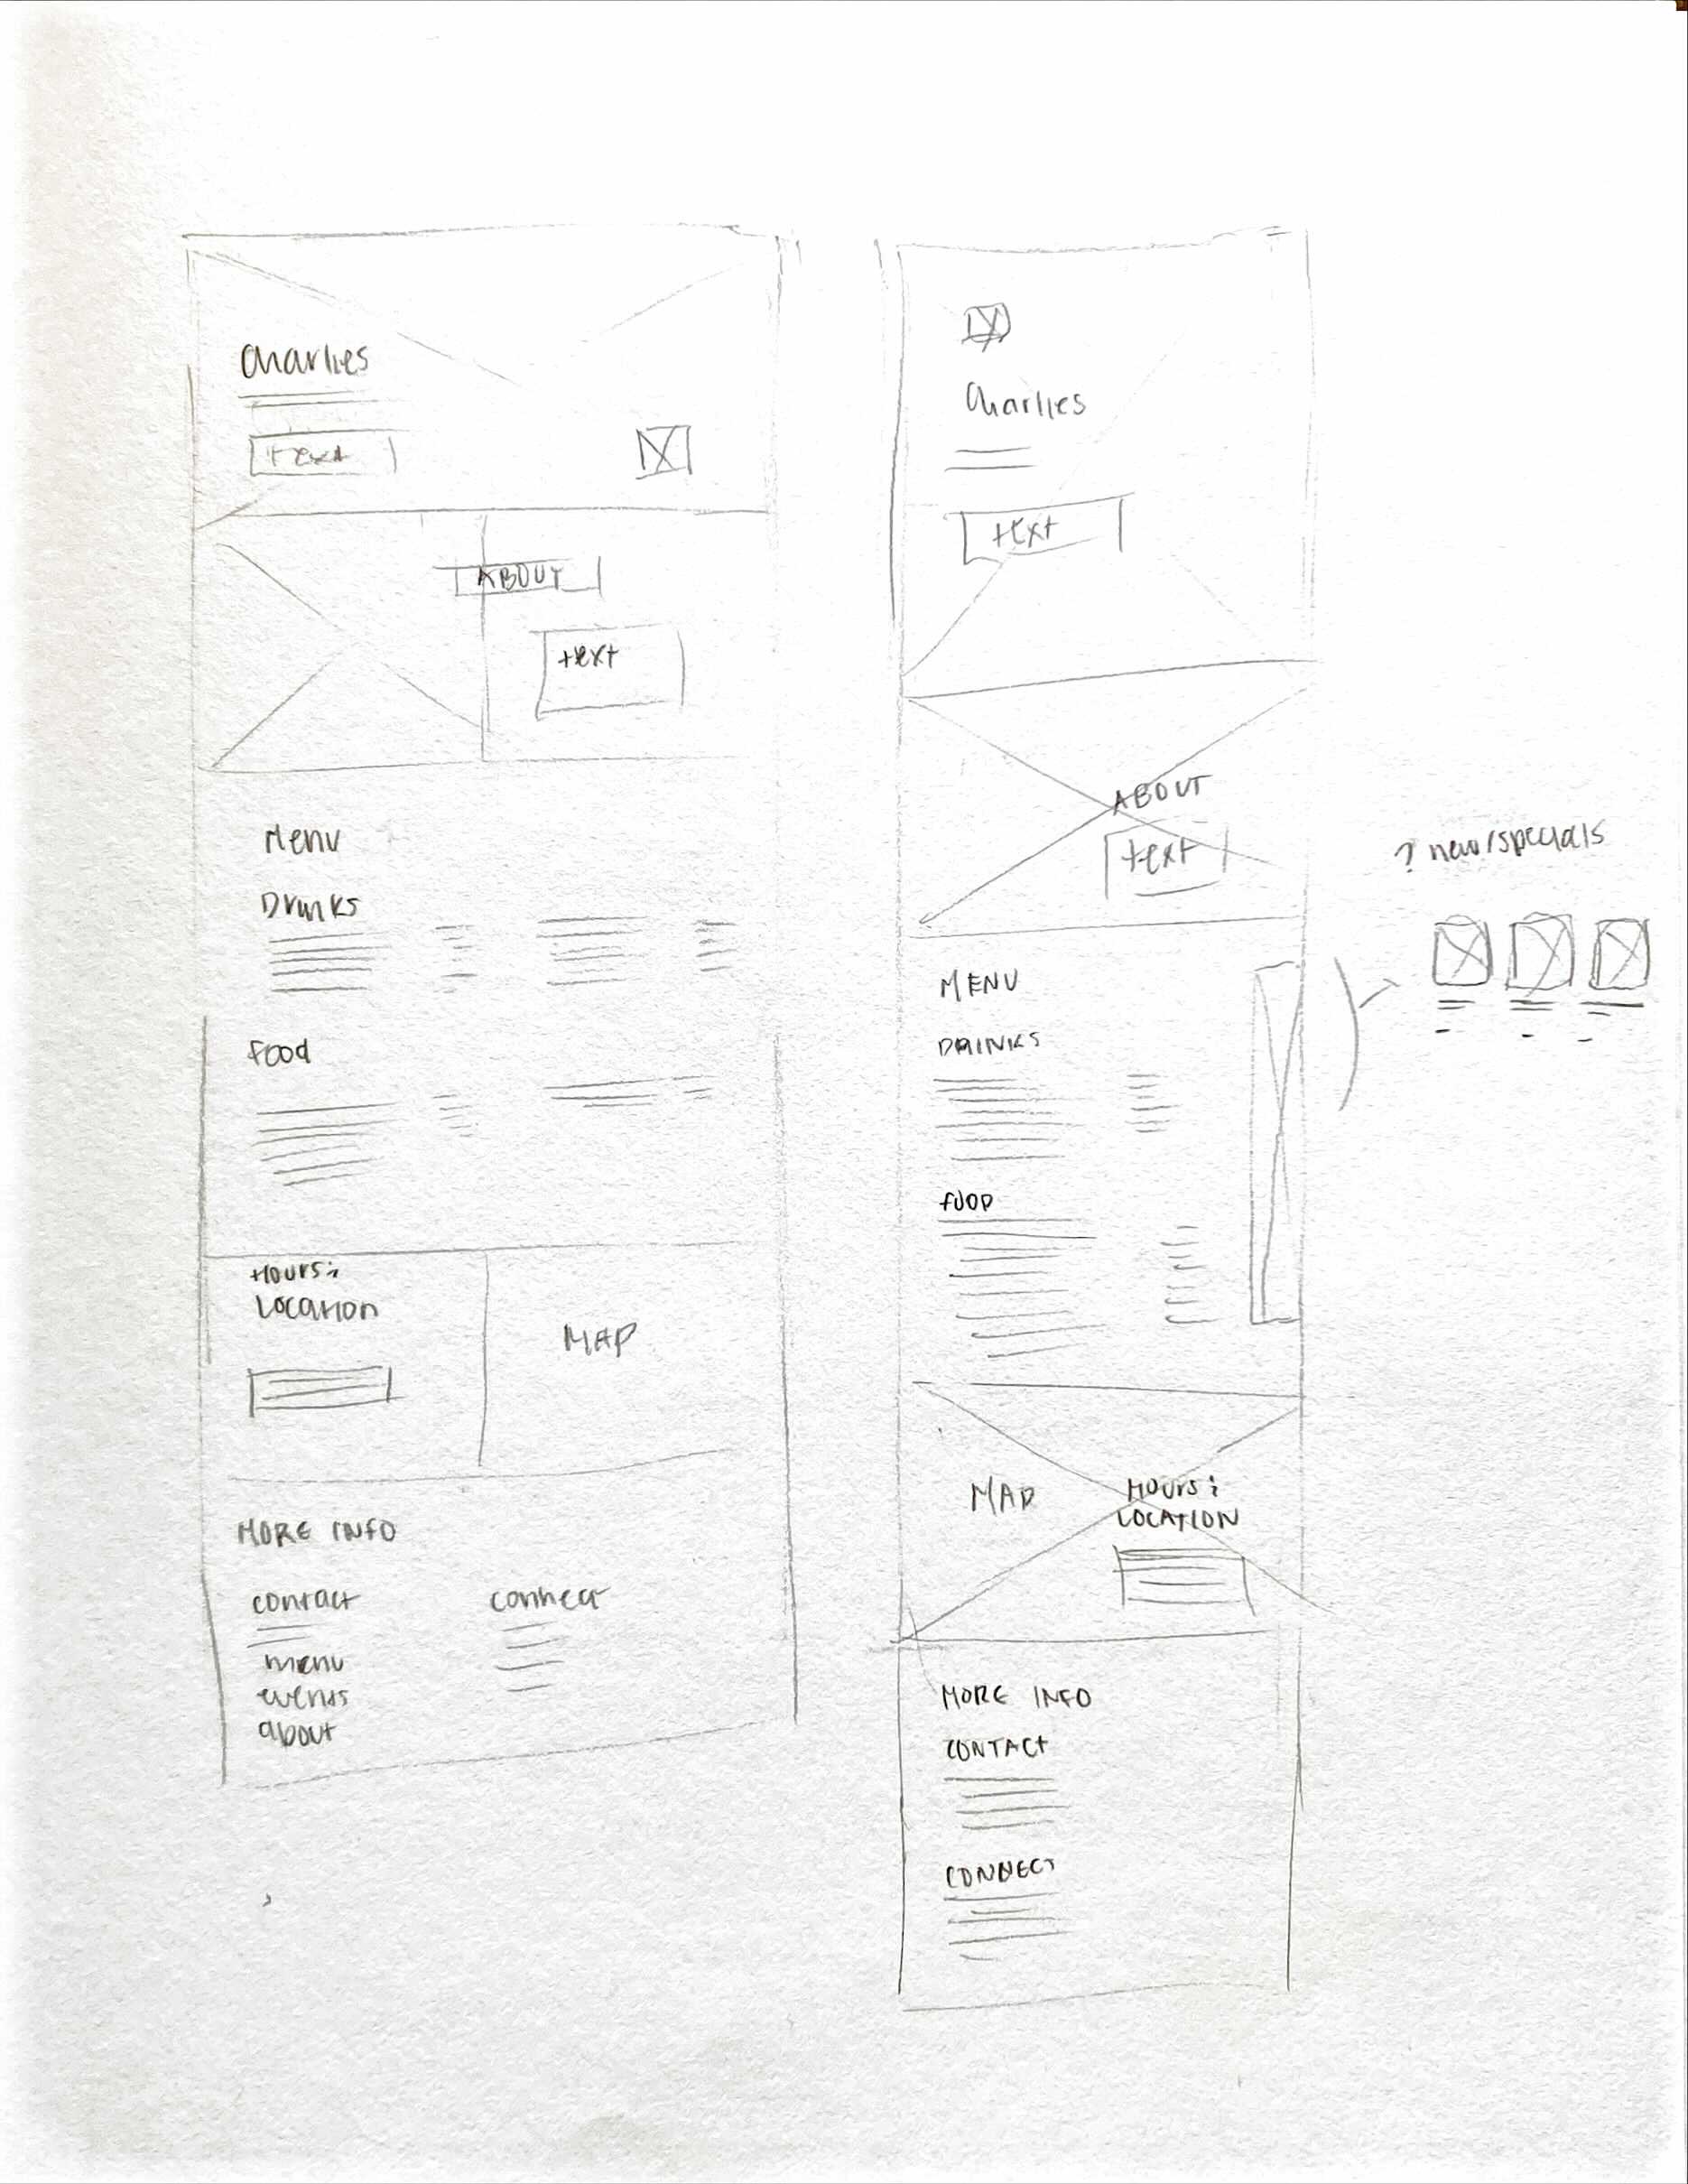 Charlies
text
ABOUT
text
Menu
Drinks
Food
HOURS &
Location
MAP
MORE INFO
contact
connect
menu
events
about
Charlies
text
ABOUT
text
MENU
DRINKS
FOOD
MAP
HOURS &
LOCATION
MORE INFO
CONTACT
CONNECT
? new/specials